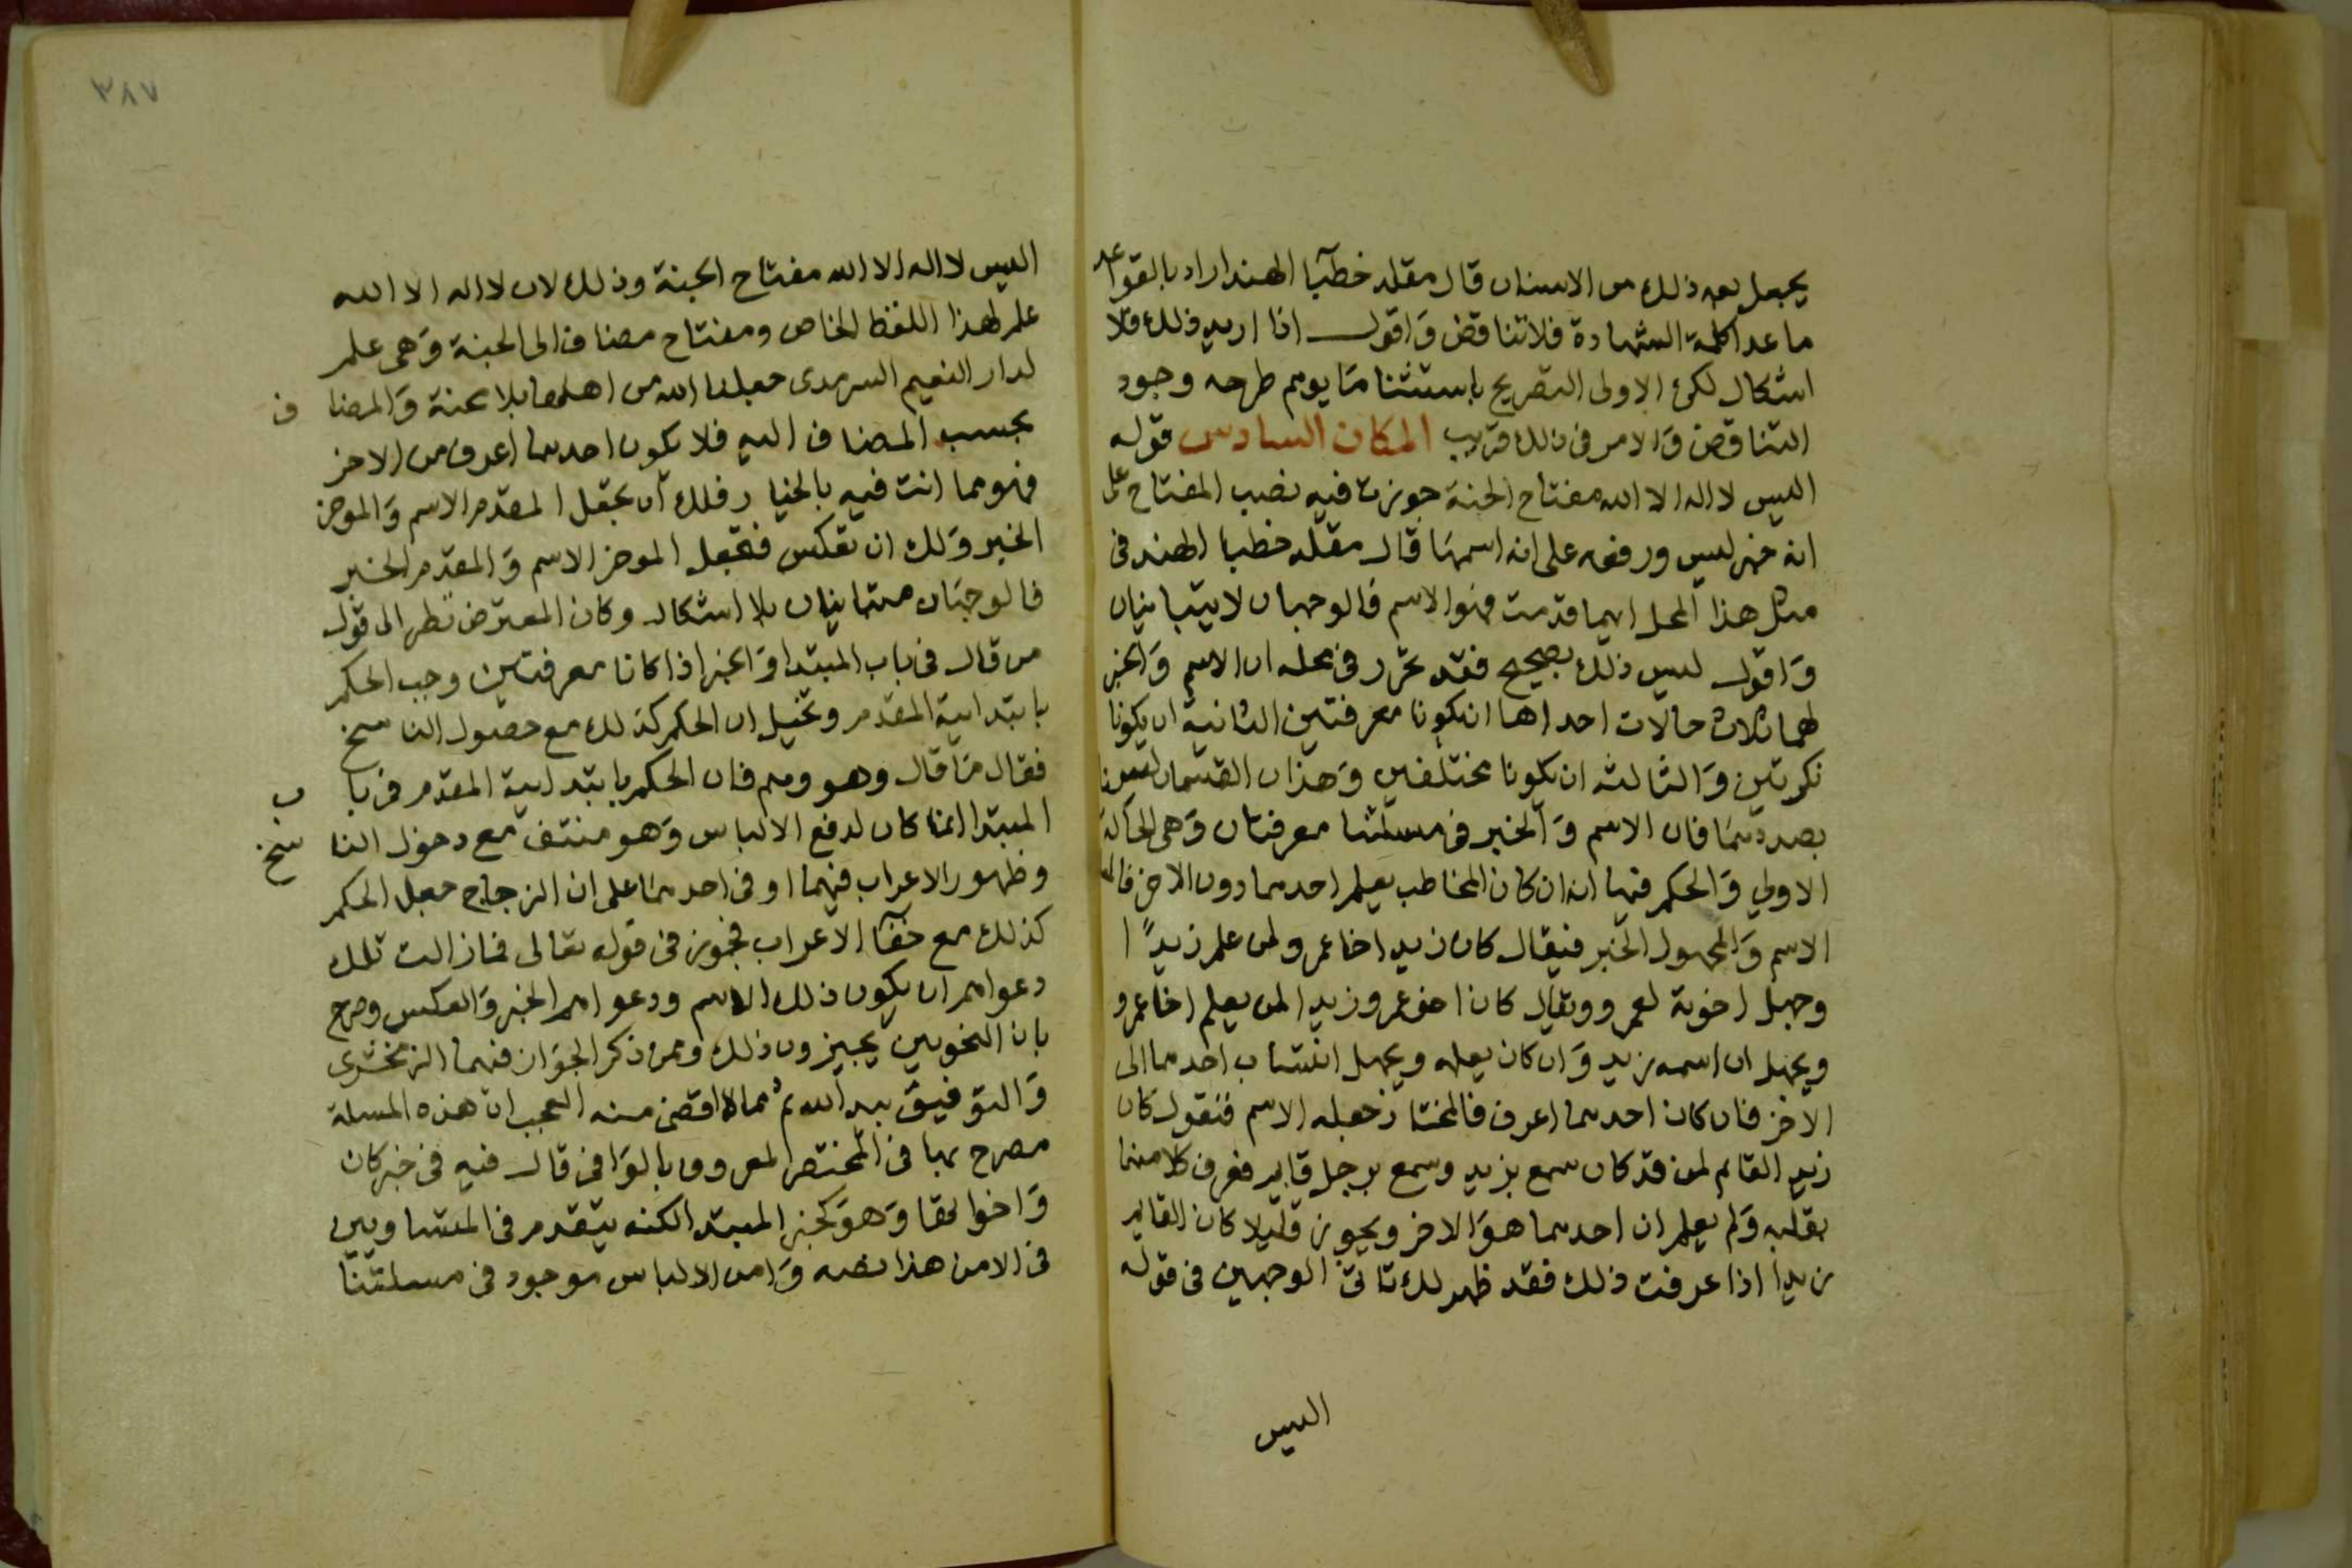 يجعل بعد ذلك من الاسنان قال مقلد خطبآ الهند اراد بالقواعد
ما عدا كلمة الشهادة فلا تناقض وَاقول اذا اريد ذلك فلا
اشكال لكن الاولى التصريح باستثنا مَا يوهم طرحه وجود
التناقض وَالامر فى ذلك قريب المكان السادس قوله
اليس لا اله الا الله مفتاح الجنة جوزت فيه نصب المفتاح على
انه خبر ليس ورفعه على انه اسمهَا قال مقلد خطبا الهند فى
مثل هذا المحل ايهما قدمت فهو الاسم فالوجهان لا يتباينان
وَاقول ليس ذلك بصحيح فقد تحرر فى محله ان الاسم وَالخبر
لهما ثلاث حالات احداها ان يكونا معرفتين الثانية ان يكونا
نكرتين وَالثالثة ان يكونا مختلفين وَهذان القسمان ليسا
بصددهمَا فان الاسم وَالخبر فى مسئلتنا معرفتان وَهى الحالة
الاولى وَالحكم فيها انه ان كان المخاطب يعلم احدهما دون الاخر فالم
الاسم وَالمجهول الخبر فيقال كان زيد اخا عمرو لمن علم زيدًا
وجهل اخوته لعمرو ويقال كان اخو عمرو زيدا لمن يعلم اخا عمرو
ويجهل ان اسمه زيد وَان كان يعلمه ويجهل انتساب احدهما الى
الاخر فان كان احدهما اعرف فالمختار جعله الاسم فنقول كان
زيد القايم لمن قد كان سمع بزيد وسمع برجل قايم فعرف كلا منهما
بقلبه وَلم يعلم ان احدهما هوَ الاخر ويجوز قليلا كان القايم
زيدا اذا عرفت ذلك فقد ظهر لك تاتى الوجهين فى قوله
اليس
٣٨٧
اليس لا اله الا الله مفتاح الجنة وذلك لان لا اله الا الله
علم لهذا اللفظ الخاص ومفتاح مضاف الى الجنة وَهى علم
لدار النعيم السرمدى جعلنا الله من اهلها بلا محنة وَالمضاف
بحسب المضاف اليه فلا يكون احدهما اعرف من الاخر
فهو مما انت فيه بالخيار فلك ان تجعل المقدم الاسم وَالموخر
الخبر وَلك ان تعكس فتجعل الموخر الاسم وَالمقدم الخبر
فالوجهَان متباينان بلا اشكال وكان المعترض نظر الى قول
من قال فى باب المبتدا وَالخبر اذا كانا معرفتين وجب الحكم
بابتداىية المقدم وتخيل ان الحكم كذلك مع حصول الناسخ
فقال مَا قال وهو وهم فان الحكم بابتداىية المقدم فى باب
المبتدا انما كان لدفع الالباس وَهو منتف مع دخول الناسخ
وظهور الاعراب فيهما او فى احدهمَا على ان الزجاج جعل الحكم
كذلك مع خفآ الاعراب فجوز فى قوله تعالى فما زالت تلك
دعواهم ان يكون ذلك الاسم ودعواهم الخبر وَالعكس وصرح
بان النحويين يجيزون ذلك وممن ذكر الجوَاز فيهما الزمخشرى
وَالتوفيق بيد الله ثم مما لا اقضى منه العجب ان هذه المسلة
مصرح بها فى المختصر المعروف بالوَافى قال فيه فى خبر كان
وَاخواتها وَهوَ كخبر المبتدا لكنه يتقدم فى المتساويين
فى الامن هذا نصه وَامن الالباس موجود فى مسلتنَا